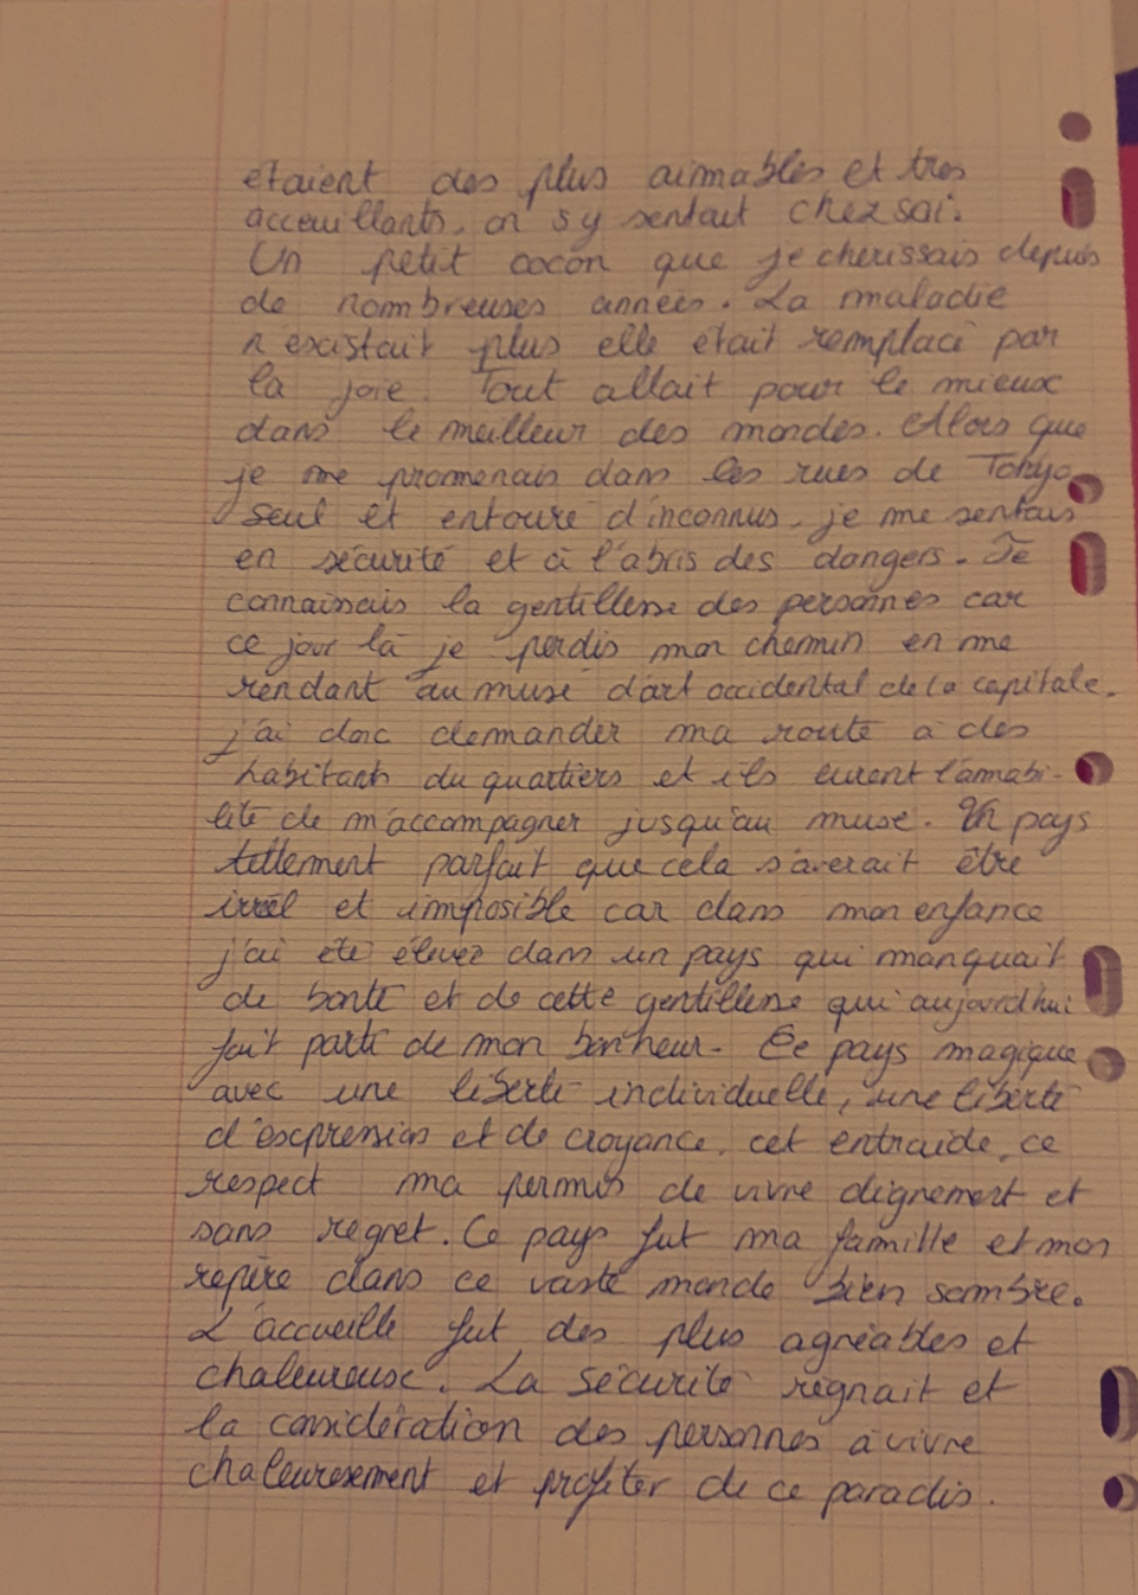 étaient des plus aimables et tres
acceuillants. on s'y sentait chez soi.
Un petit cocon que je cherissais depuis
de nombreuses années. La maladie
n'existait plus elle était remplacé par
la joie. Tout allait pour le mieux
dans le meilleur des mondes. Alors que
je me promenais dans les rues de Tokyo
seul et entouré d'inconnus. je me sentais
en sécurité et à l'abris des dangers. Je
connaissais la gentillesse des personnes car
ce jour là je perdis mon chemin en me
rendant au musé d'art occidental de la capitale.
j'ai donc demander ma route a des
habitants du quartiers et ils eurent l'amabi-
lité de m'accompagner jusqu'au musé. Un pays
tellement parfait que cela s'averait être
irréel et imposible car dans mon enfance
j'ai été élevez dans un pays qui manquait
de bonté et de cette gentillesse qui aujourd'hui
fait parti de mon bonheur. Ce pays magique
avec une liberté individuelle, une liberté
d'expression et de croyance. cet entraide, ce
respect ma permis de vivre dignement et
sans regret. Ce pays fut ma famille et mon
repère dans ce vaste monde bien sombre.
L'accueille fut des plus agréables et
chaleureux. La sécurité régnait et
la considération des personnes à vivre
chaleuresement et profiter de ce paradis.